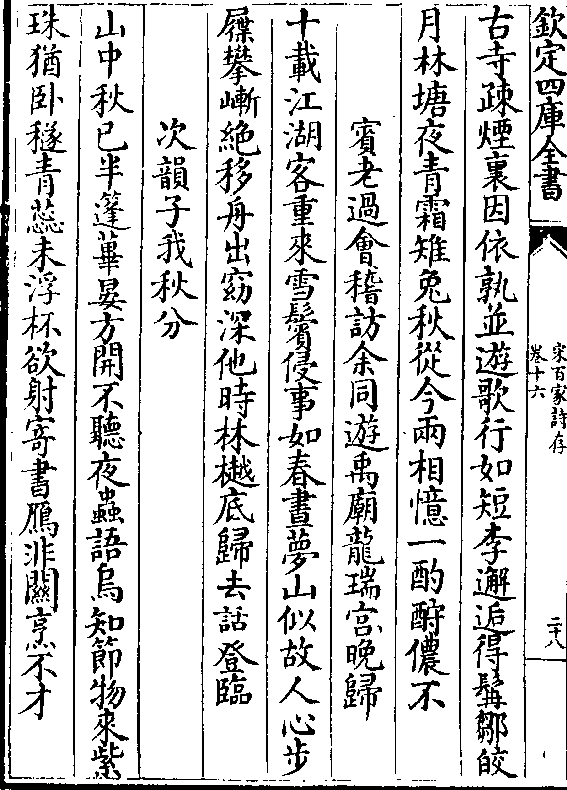 欽定四庫全書
宋百家詩存
卷十六
二十八
古寺疎煙裏因依孰並遊歌行如短李邂逅得髯鄒皎
月林塘夜青霜雉兔秋從今兩相憶一酌酹儂不
賓老過會稽訪余同遊禹廟龍瑞宫晚歸
十載江湖客重來雪鬢侵事如春晝夢山似故人心步
屧攀嶄絶移舟出窈深他時林樾底歸去話登臨
次韻子我秋分
山中秋已半蓬蓽晏方開不聽夜蟲語烏知節物來紫
珠猶卧穟青蕊未浮杯欲射寄書鴈非關烹不才